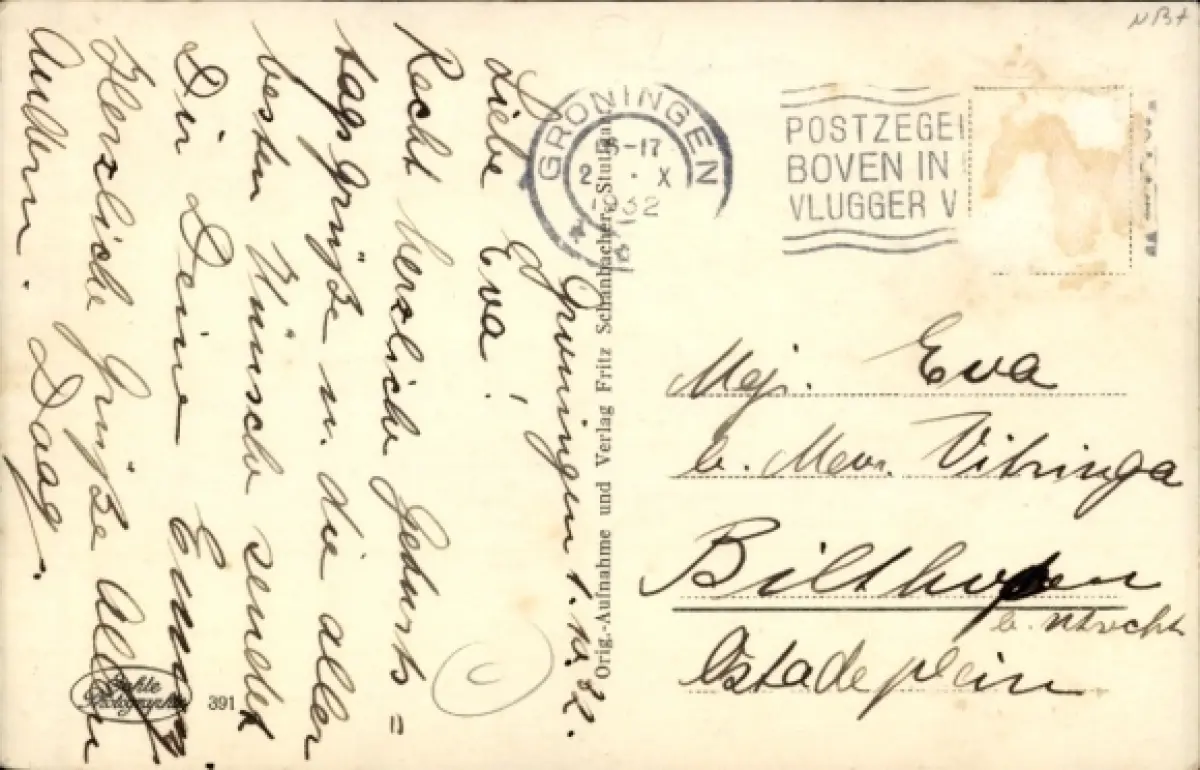 Groningen 1.10.32.
Liebe Eva!
Recht herzliche Geburts=
tagsgrüße u. die aller
besten Wünsche sendet
Dir Deine Emmy.
Herzliche Grüße allen
Andern. Daag.
Orig.-Aufnahme und Verlag Fritz Schanbacher, Stuttgart
Echte
Photographie
391
GRONINGEN
-17
2 . X
1932
POSTZEGE
BOVEN IN
VLUGGER V
Mej. Eva
b. Mevr. Vitringa
Bilthoven
b. Utrecht